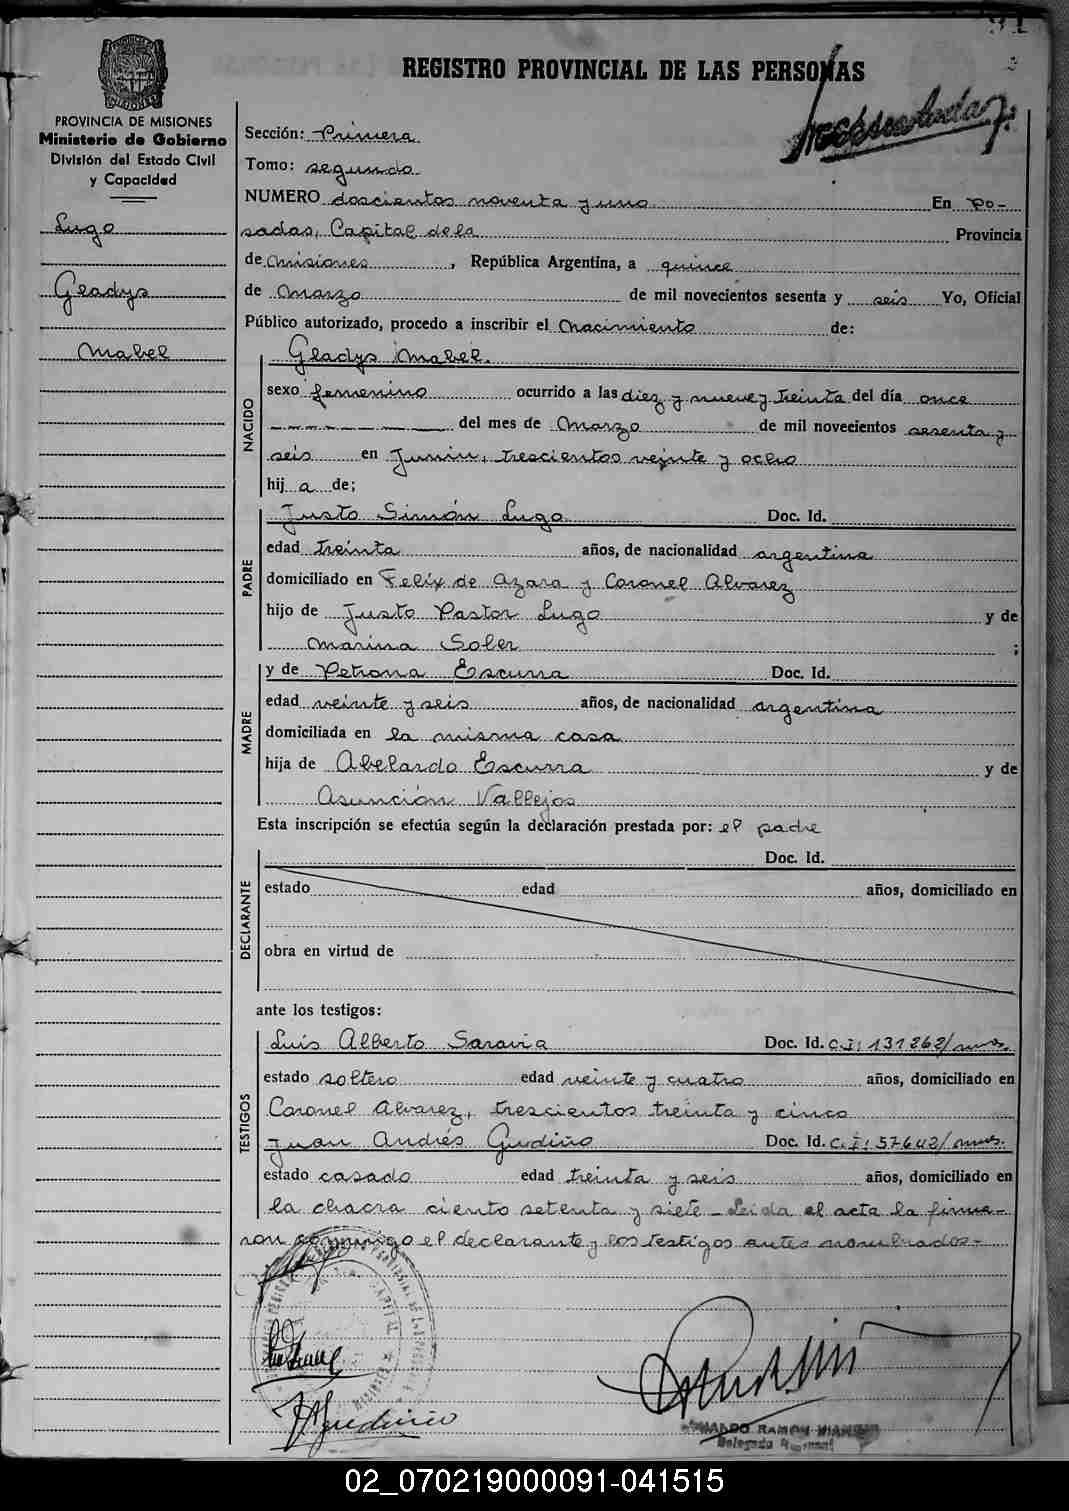 REGISTRO PROVINCIAL DE LAS PERSONAS
PROVINCIA DE MISIONES
Ministerio de Gobierno
División del Estado Civil
y Capacidad
Lugo
Gladys
Mabel
Sección: Primera
Tomo: segundo
NUMERO doscientos noventa y uno En Po-
sadas, Capital de la Provincia
de Misiones, República Argentina, a quince
de Marzo de mil novecientos sesenta y seis Yo, Oficial
Público autorizado, procedo a inscribir el Nacimiento de:
Gladys Mabel.
NACIDO
sexo femenino ocurrido a las diez y nueve y treinta del día once
del mes de Marzo de mil novecientos sesenta y
seis en Junín, trescientos veinte y ocho
hij a de;
PADRE
Justo Simón Lugo Doc. Id.
edad treinta años, de nacionalidad argentina
domiciliado en Felix de Azara y Coronel Alvarez
hijo de Justo Pastor Lugo y de
Marina Soler ;
MADRE
y de Petrona Escurra Doc. Id.
edad veinte y seis años, de nacionalidad argentina
domiciliada en la misma casa
hija de Abelardo Escurra y de
Asunción Vallejos
Esta inscripción se efectúa según la declaración prestada por: el padre
DECLARANTE
Doc. Id.
estado edad años, domiciliado en
obra en virtud de
ante los testigos:
TESTIGOS
Luis Alberto Saravia Doc. Id. C.I: 131262/mnes.
estado soltero edad veinte y cuatro años, domiciliado en
Coronel Alvarez, trescientos treinta y cinco
Juan Andrés Gudiño Doc. Id. C.I: 57642/mnes.
estado casado edad treinta y seis años, domiciliado en
la chacra ciento setenta y siete - Leida el acta la firma-
ron conmigo el declarante y los testigos antes nombrados-
RAMON
Delegado
02_070219000091-041515